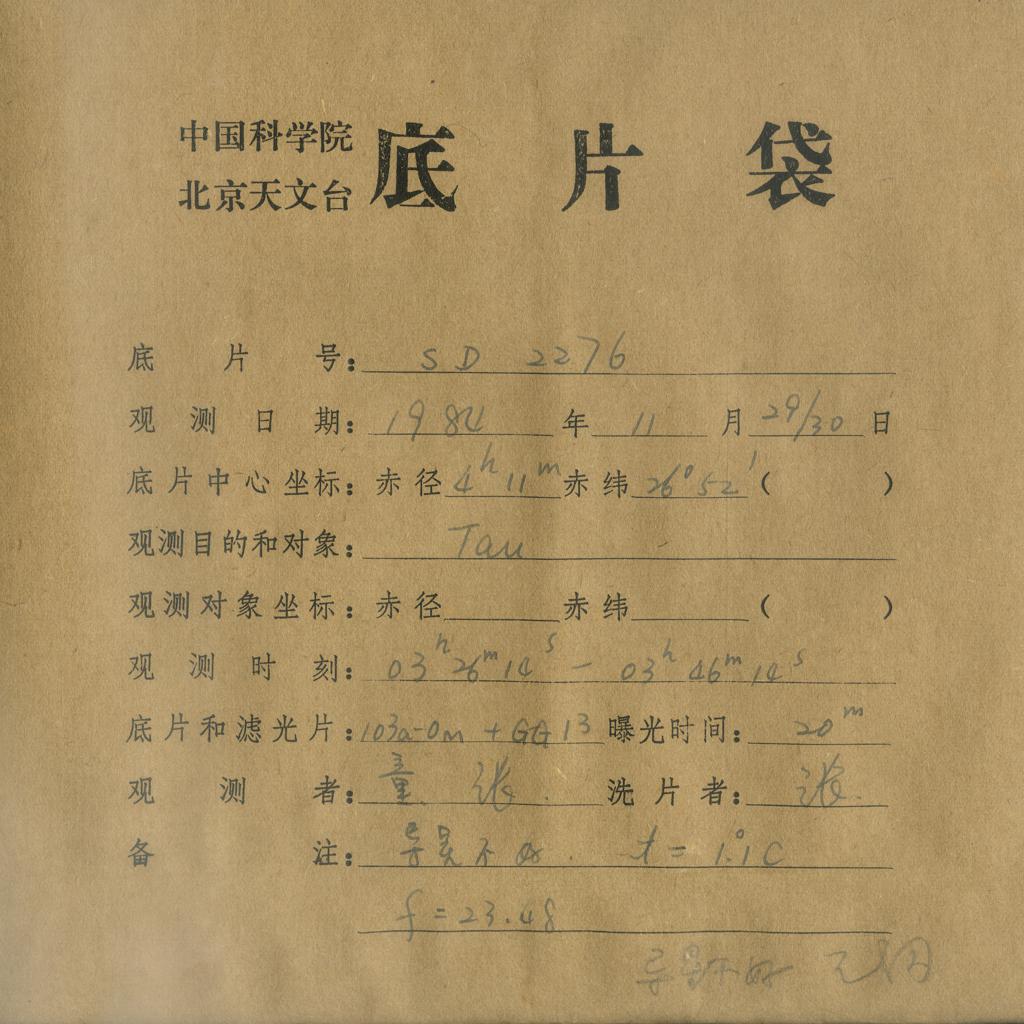 中国科学院
北京天文台
底片袋
底片号: SD 2276
观测日期: 1984年11月29/30日
底片中心坐标: 赤径 4h 11m 赤纬 26° 52' ( )
观测目的和对象: Tau
观测对象坐标: 赤径 赤纬 ( )
观测时刻: 03h 26m 14s - 03h 46m 14s
底片和滤光片: 103a-Om + GG 13 曝光时间: 20m
观测者: 童 张. 洗片者: 张.
备注: 导星不好. t = 1.°1C
f = 23.48
导星不好